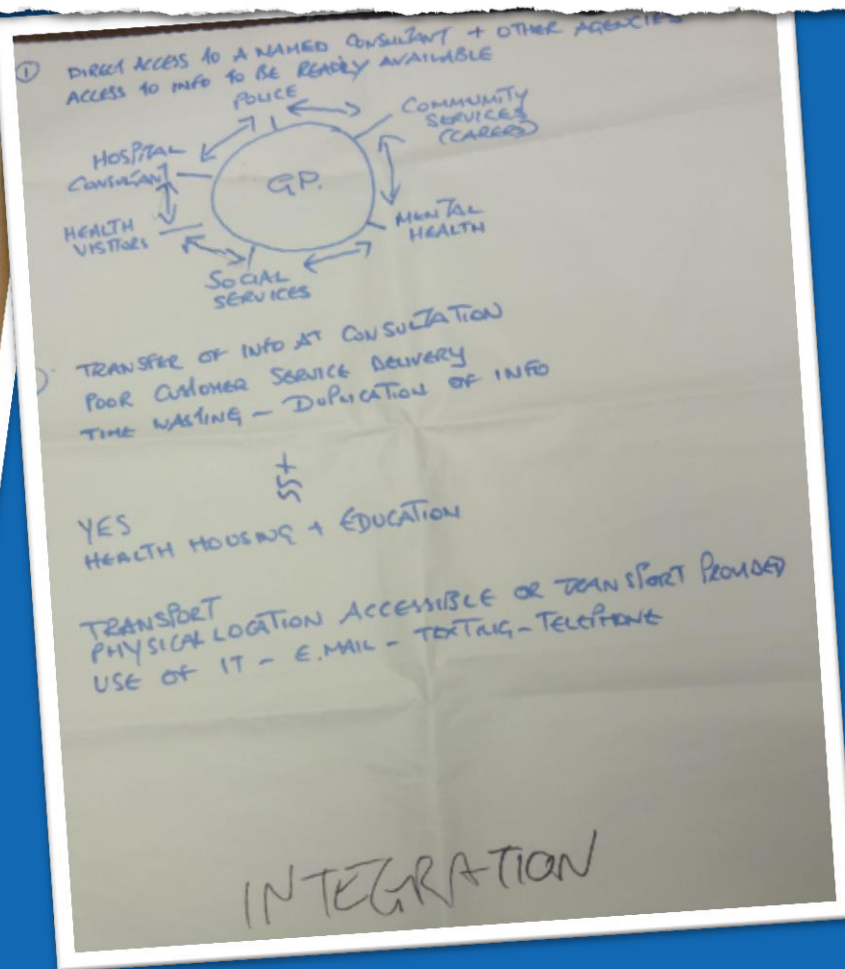 ① DIRECT ACCESS TO A NAMED CONSULTANT + OTHER AGENCIES
ACCESS TO INFO TO BE READILY AVAILABLE
POLICE
COMMUNITY
SERVICES
(CARERS)
HOSPITAL
CONSULTANT
G.P.
HEALTH
VISITORS
MENTAL
HEALTH
SOCIAL
SERVICES
TRANSFER OF INFO AT CONSULTATION
POOR CUSTOMER SERVICE DELIVERY
TIME WASTING - DUPLICATION OF INFO
YES
HEALTH HOUSING + EDUCATION
TRANSPORT
PHYSICAL LOCATION ACCESSIBLE OR TRANSPORT PROVIDED
USE OF IT - E.MAIL - TEXTING - TELEPHONE
INTEGRATION